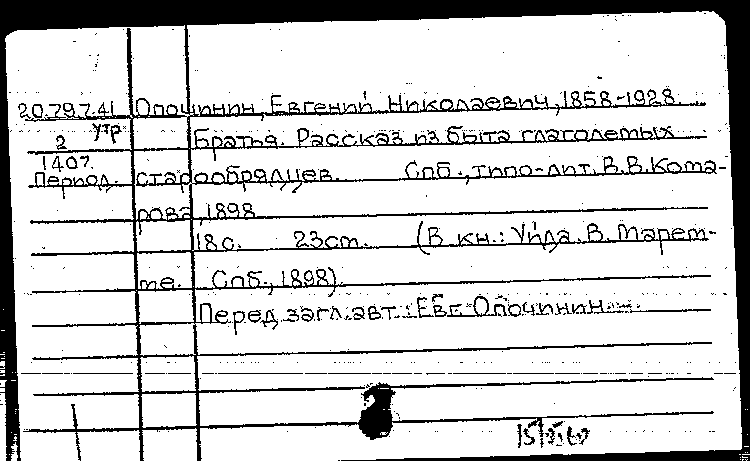 20.79.7.41 Опочинин, Евгений Николаевич, 1858-1928.
2 утр Братья. Рассказ из быта глаголемых
1407.
Период. старообрядцев. Спб., типо-лит. В.В. Кома-
рова, 1898
18 с. 23 cm. (В кн.: Уйда. В. Марем-
ме. Спб., 1898).
Перед загл. авт.: Евг. Опочинин